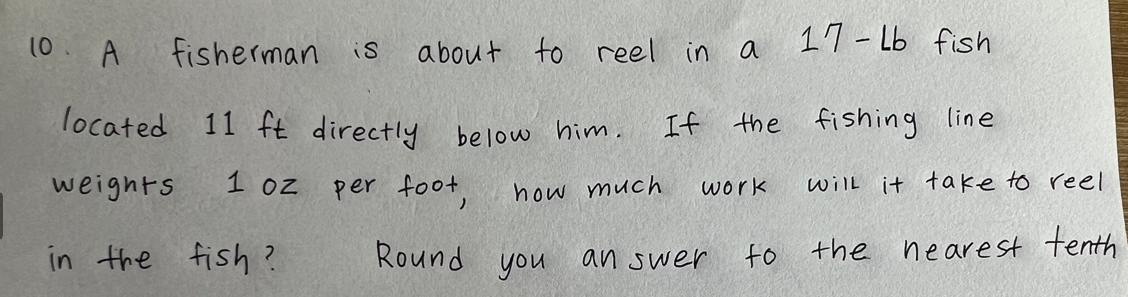 10. A fisherman is about to reel in a 17-Lb fish
located 11 ft directly below him. If the fishing line
weights 1 oz per foot, how much work will it take to reel
in the fish? Round you answer to the nearest tenth